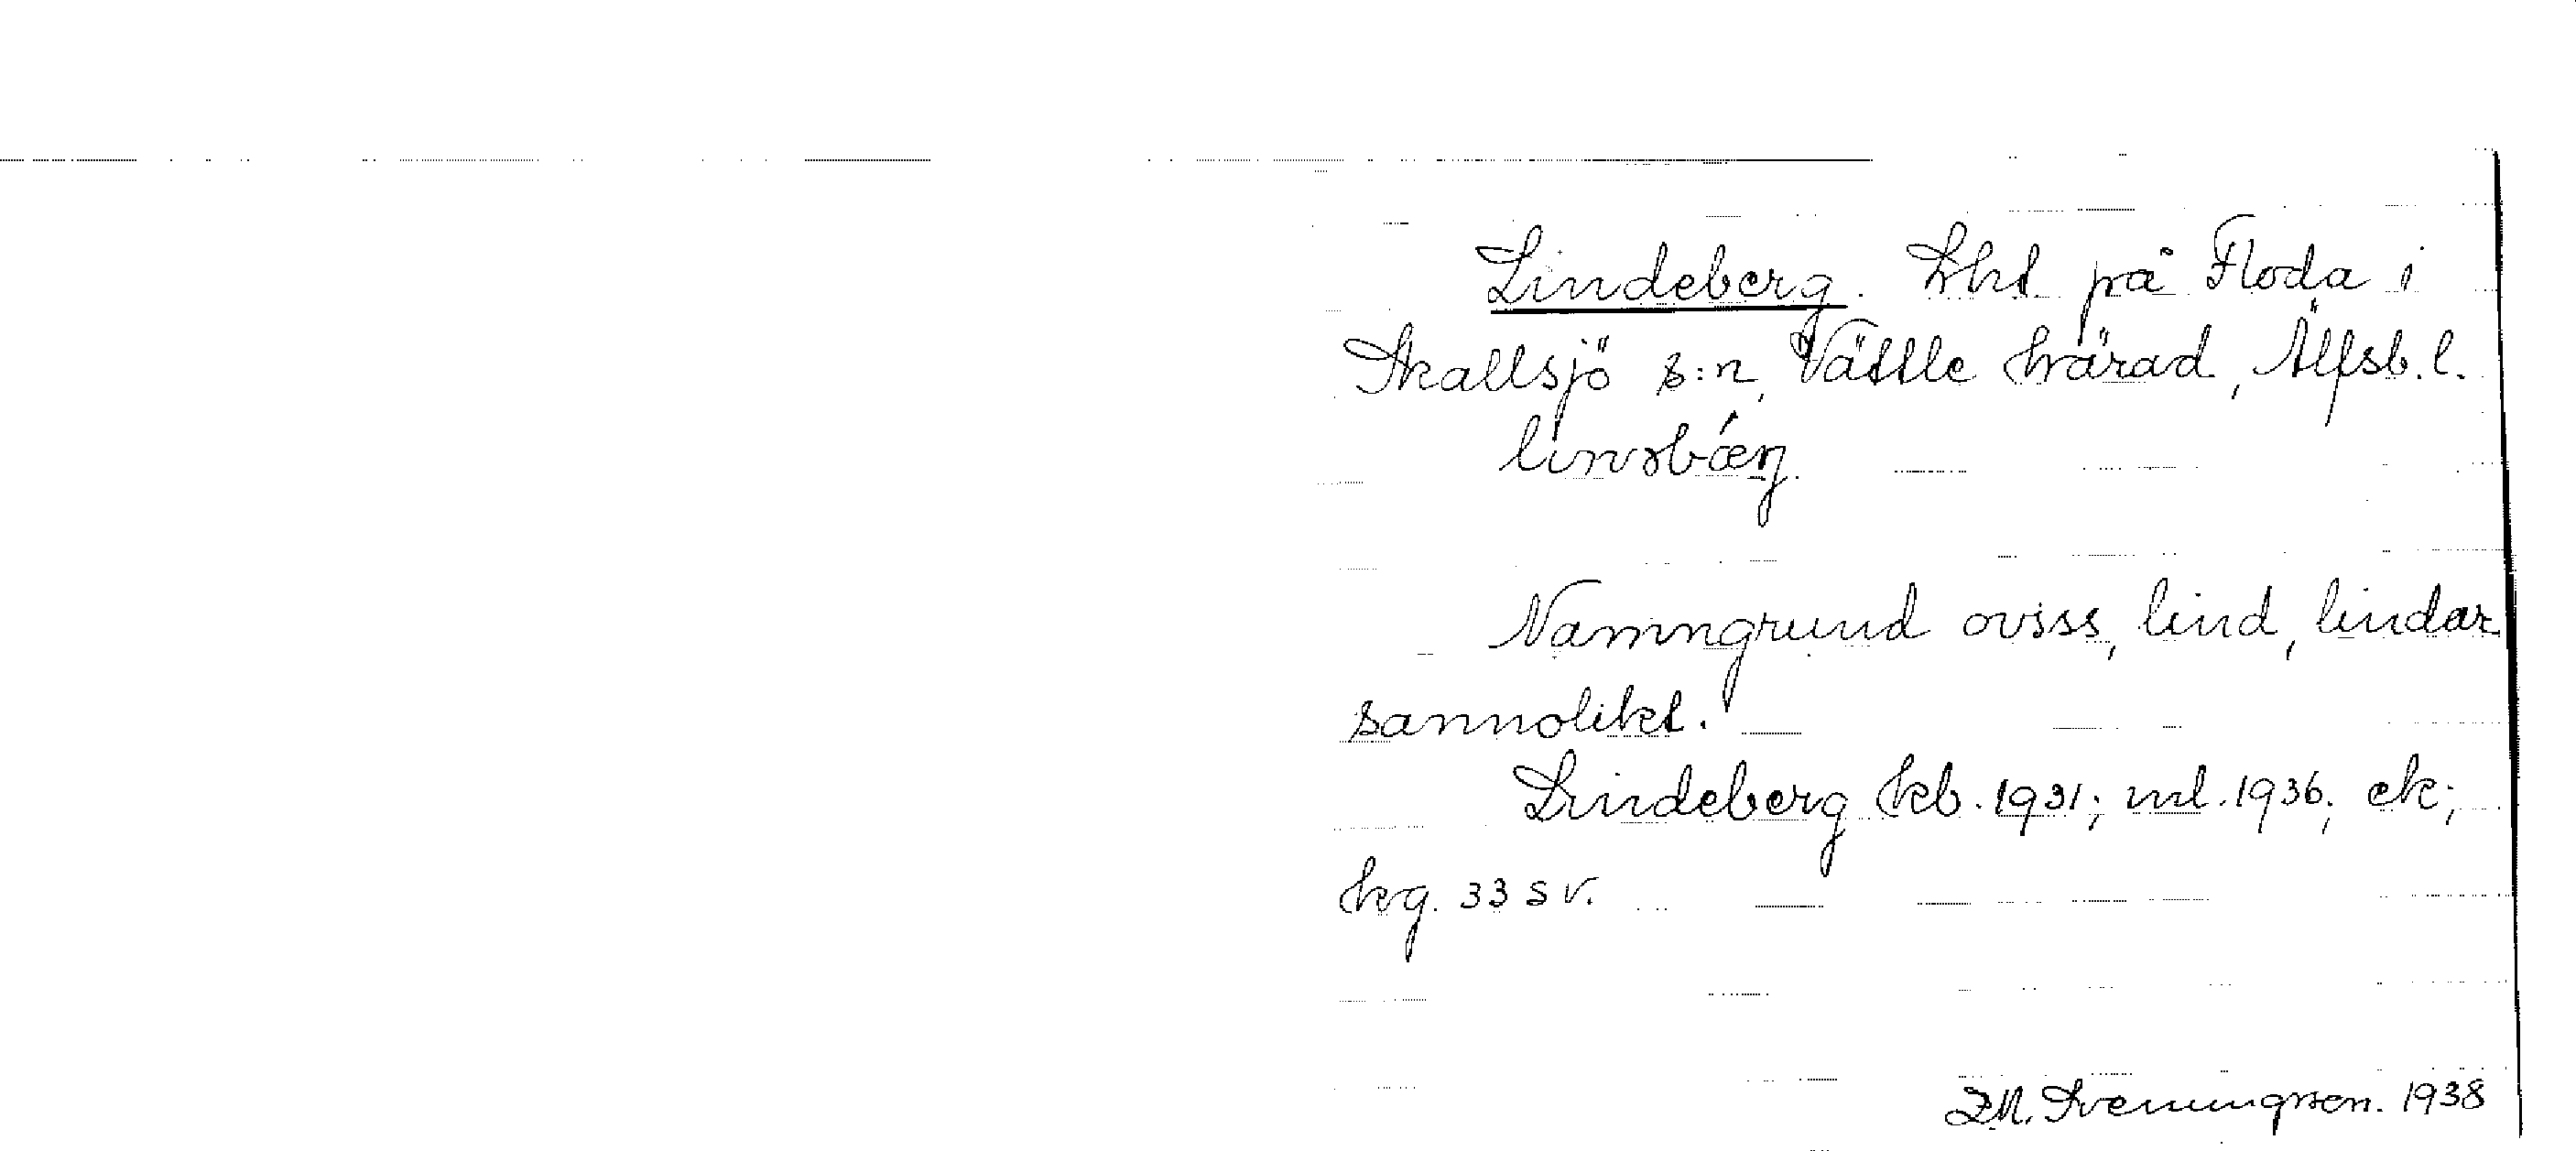 Lindeberg. Lht på Floda i
Skallsjö s:n, Vättle härad, Älfsb. l.
Namngrund oviss, lind, lindar
sannolikt.
Lindeberg kb. 1931; ml. 1936; ek;
hg. 33 s v.
Svenungsson. 1938